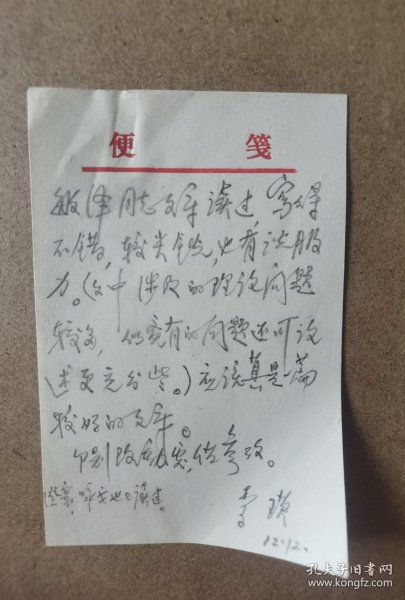 便笺
敏泽同志文章读过,写得
不错,较尖锐,也有说服
力。(文中涉及的理论问题
较多,但竟有的问题还可论
述更充分些。)应该真是一篇
较好的文章。
个别改动处,供参考。
也已读过。
12.12.
孔夫子旧书网
www.kongfz.com